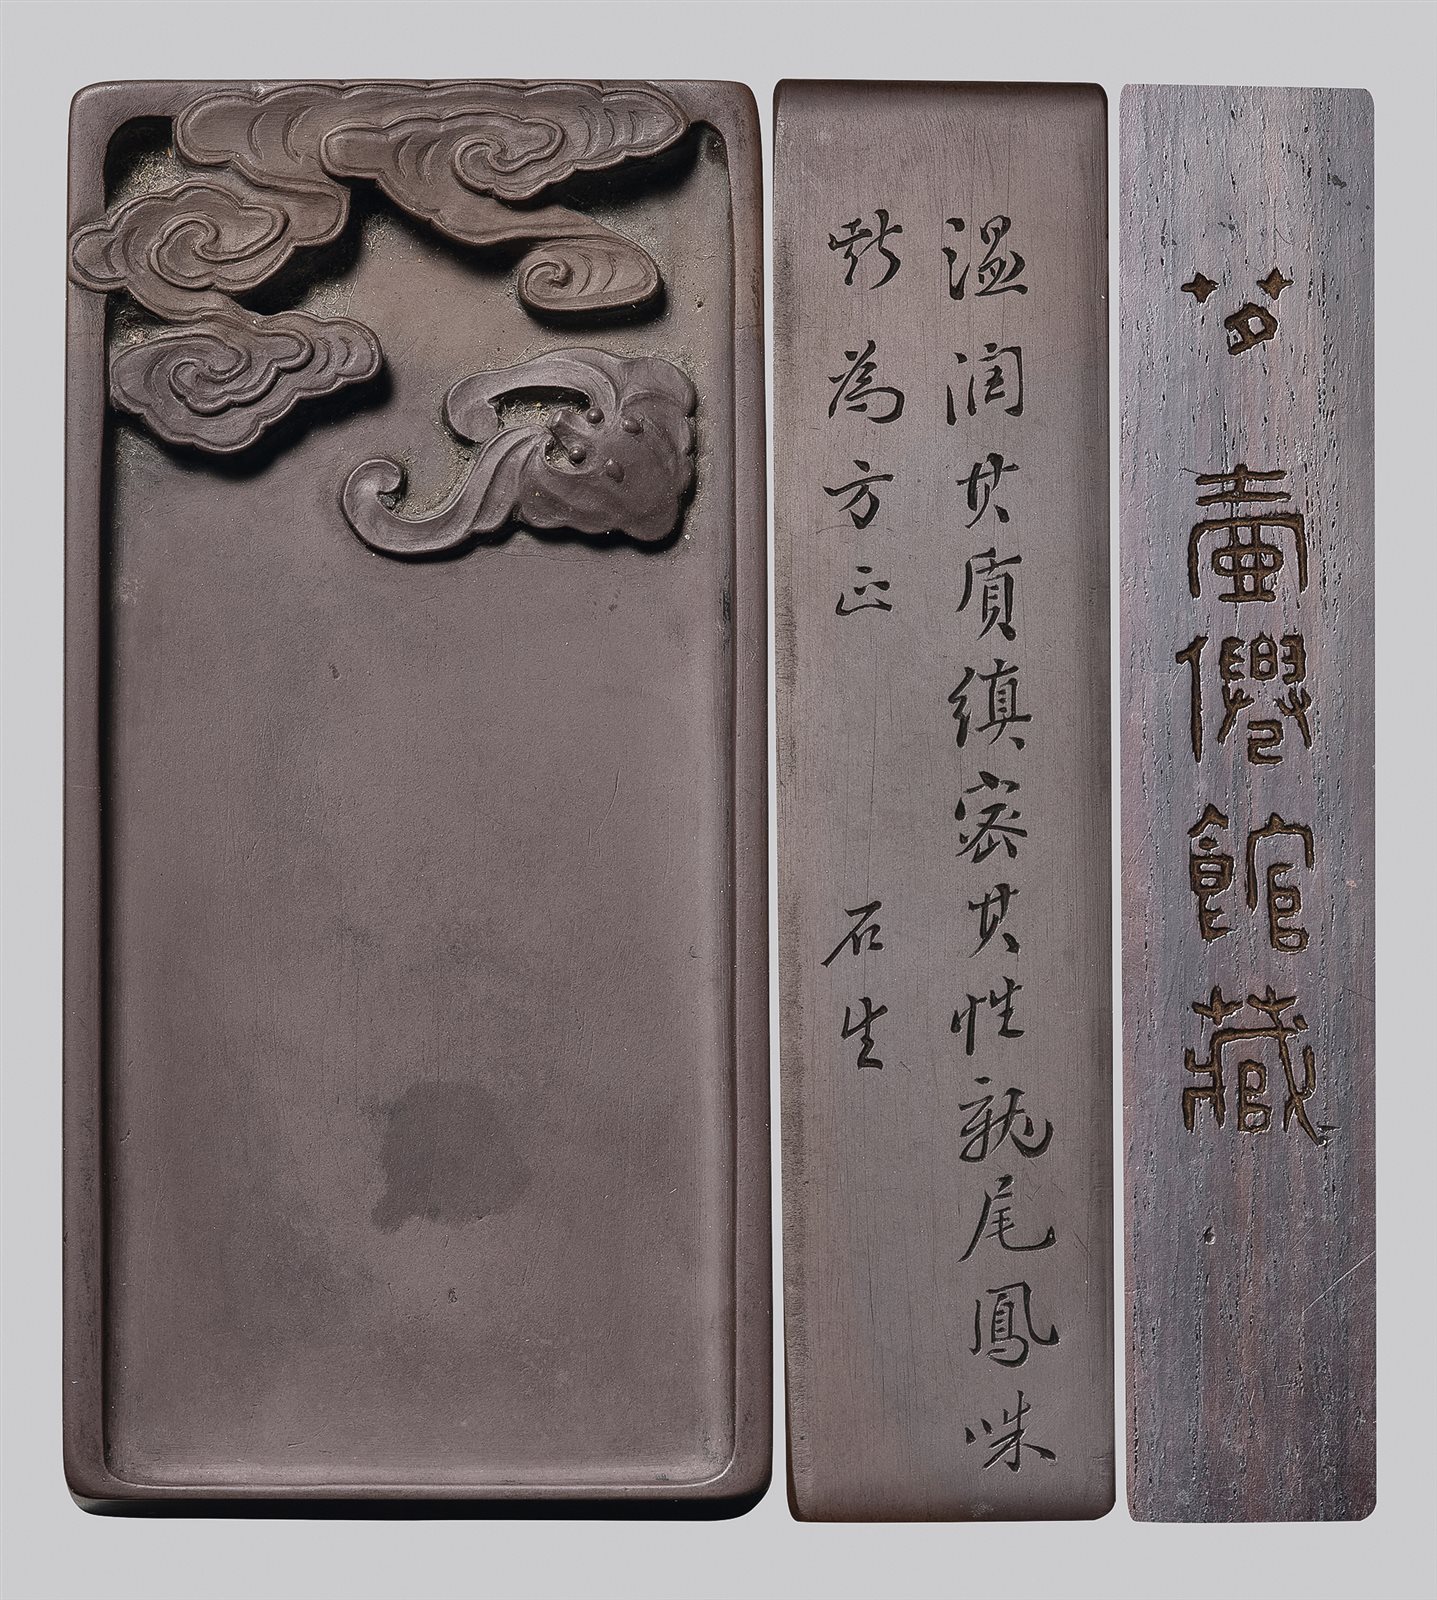 温潤其質縝密其性龍尾鳳咮
斯為方正
石生
壺僊館藏